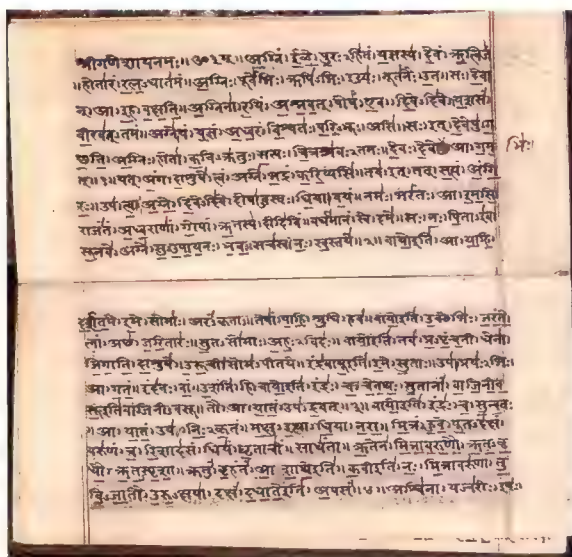 श्रीगणेशायनमः॥ॐ३म्॥ अग्निं। ईळे। पुरःऽहितं। यज्ञस्य। देवं। ऋत्विजं
॥होतारं। रत्नऽधातमं॥ अग्निः। पूर्वेभिः। ऋषिऽभिः। ईड्यः। नूतनैः। उत। सः। देवा
न्। आ। इह। वक्षति॥ अग्निना। रयिं। अश्नवत्। पोषं। एव। दिवेऽदिवे। यशसं
वीरवत्ऽतमं॥ अग्ने। यं। यज्ञं। अध्वरं। विश्वतः। परिऽभूः। असि॥ सः। इत्। देवेषु। ग
च्छति॥ अग्निः। होता। कविऽक्रतुः। सत्यः। चित्रश्रवःऽतमः॥ देवः। देवे। आ। गम
भिः।
त्॥१॥ यत्। अंग। दाशुषे। त्वं। अग्ने। भद्रं। करिष्यसि॥ तव। इत्। तत्। सत्यं। अंगि
रः॥ उप। त्वा। अग्ने। दिवेऽदिवे। दोषाऽवस्तः। धिया। वयं। नमः। भरंतः। आ। इमसि
राजंतं। अध्वराणां। गोपां। ऋतस्य। दीदिविं। वर्धमानं। स्वे। दमे॥ सः। नः। पिताऽइव
सूनवे। अग्ने। सुऽउपायनः। भव। सचस्व। नः। स्वस्तये॥२॥ वायोइति। आ। याहि।
दर्शत। इमे। सोमाः। अरंऽकृताः॥ तेषां। पाहि। श्रुधि। हवं॥ वायोइति। उक्थेभिः। जरंते
त्वां। अच्छ। जरितारः॥ सुतऽसोमाः। अहःऽविदः॥ वायोइति। तव। प्रऽपृंचती। धेना।
जिगाति। दाशुषे॥ उरूची। सोमऽपीतये॥ इंद्रवायूइति। इमे। सुताः। उप। प्रयःऽभिः।
आ। गतं॥ इंदवः। वां। उशंति। हि॥ वायोइति। इंद्रः। च। चेतथः। सुतानां। वाजिनीव
सूइतिवाजिनीवसू॥ तौ। आ। यातं। उप। द्रवत्॥३॥ वायोइति। इंद्रः। च। सुन्वतः
॥ आ। यातं। उप। निःऽकृतं॥ मक्षु। इत्था। धिया। नरा॥ मित्रं। हुवे। पूतऽदक्षं।
वरुणं। च। रिशादसं॥ धियं। घृताचीं। साधंता॥ ऋतेन। मित्रावरुणौ। ऋतऽवृ
धौ। ऋतऽस्पृशा॥ क्रतुं। बृहंतं। आशाथेइति॥ कवीइति। नः। मित्रावरुणा। तु
विऽजातौ। उरुऽक्षया॥ दक्षं। दधातेइति। अपसं॥४॥ अश्विना। यज्वरीः। इषः।